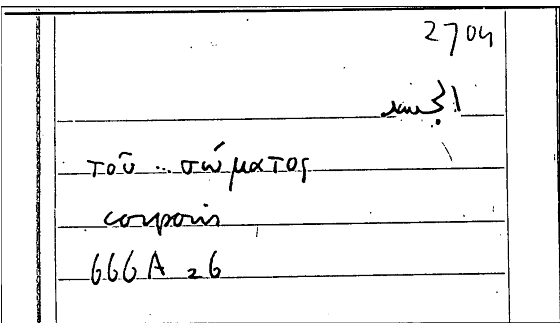 2704
الجسد
τοῦ .. σώματος
corporis
666A 26